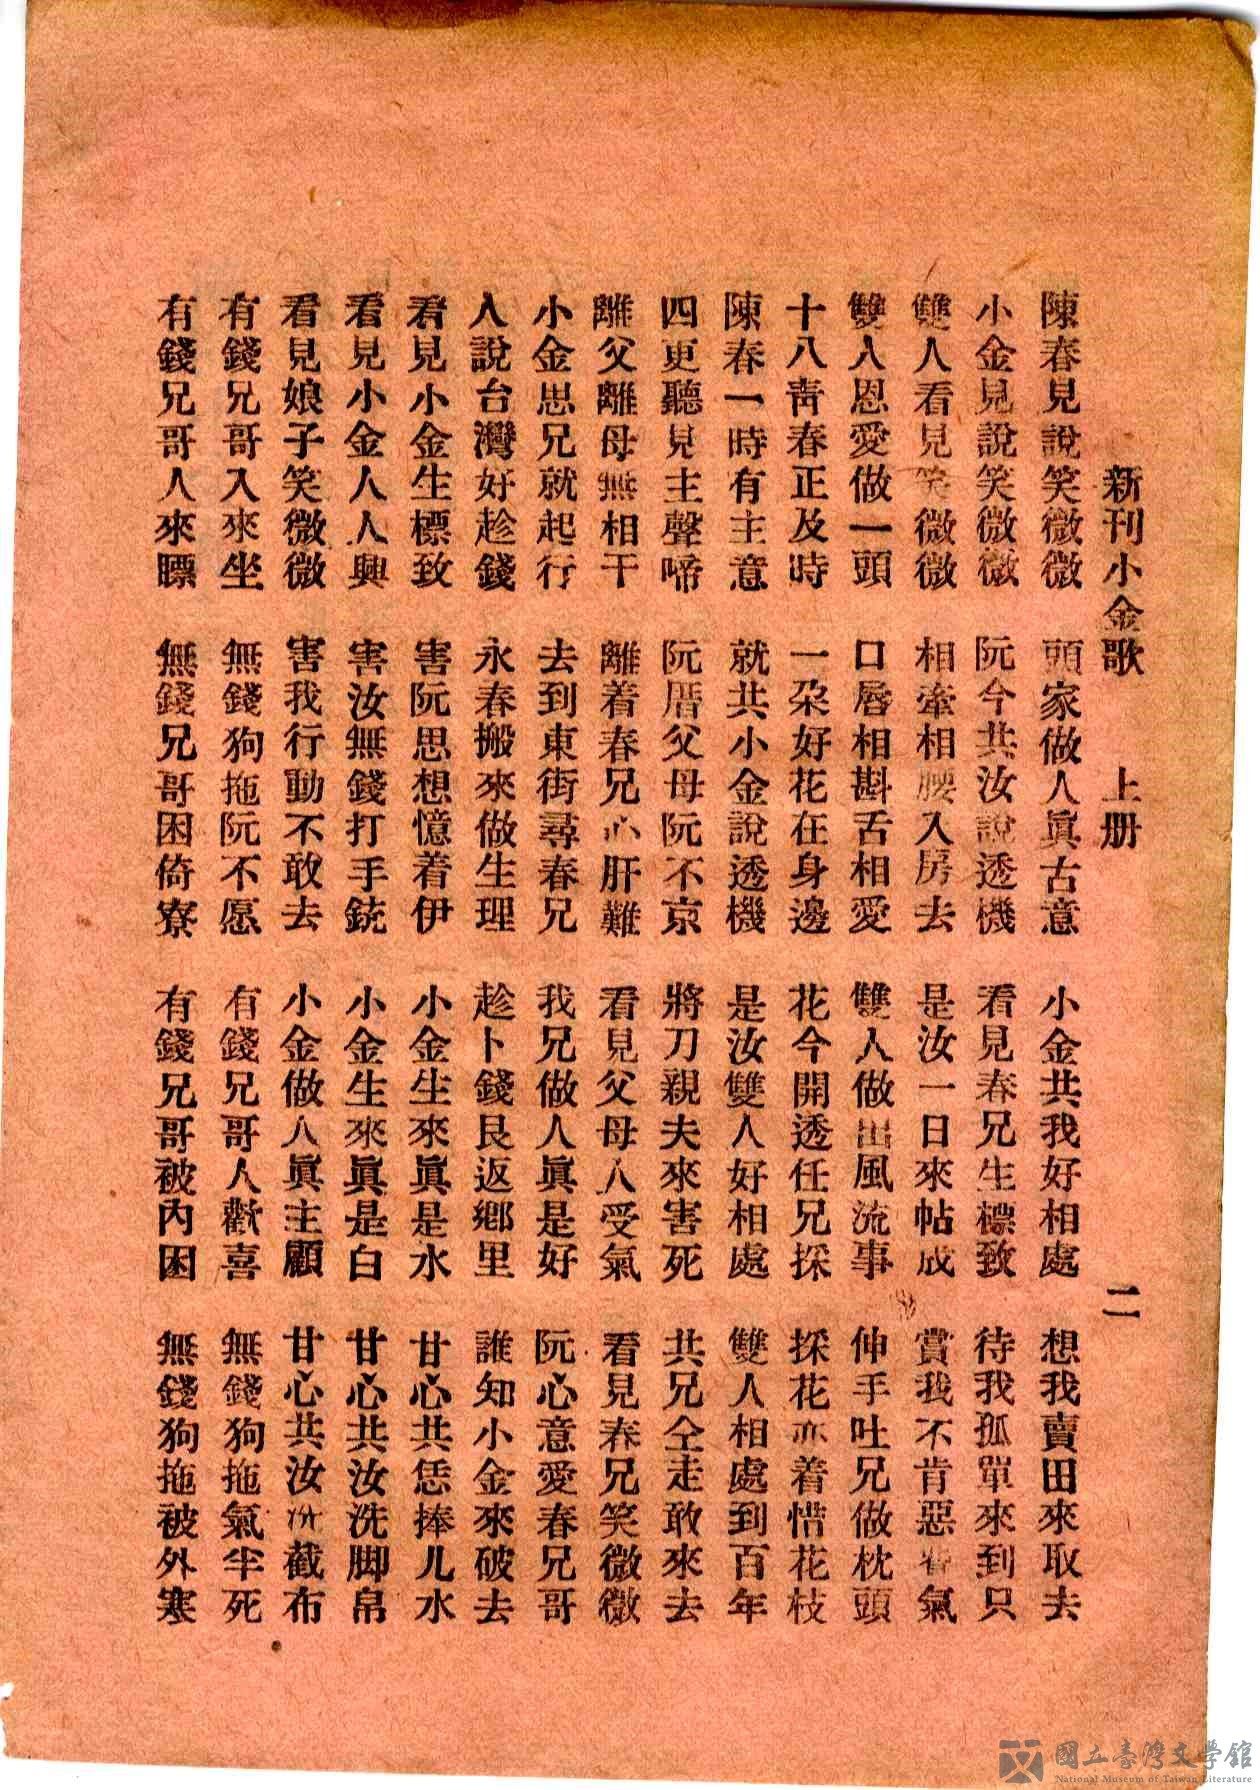 新刊小金歌 上册 二
陳春見說笑微微 頭家做人眞古意 小金共我好相處 想我賣田來取去
小金見說笑微微 阮今共汝說透機 看見春兄生標致 待我孤單來到只
雙人看見笑微微 相牽相腰入房去 是汝一日來帖成 賞我不肯惡 氣
雙人恩愛做一頭 口唇相斟舌相愛 雙人做出風流事 伸手吐兄做枕頭
十八靑春正及時 一朶好花在身邊 花今開透任兄採 採花亦着惜花枝
陳春一時有主意 就共小金說透機 是汝雙人好相處 雙人相處到百年
四更聽見主聲啼 阮厝父母阮不京 將刀親夫來害死 共兄仝走敢來去
離父離母無相干 離着春兄心肝難 看見父母人受氣 看見春兄笑微微
小金思兄就起行 去到東街尋春兄 我兄做人眞是好 阮心意愛春兄哥
人說台灣好趁錢 永春搬來做生理 趁卜錢艮返鄉里 誰知小金來破去
看見小金生標致 害阮思想憶着伊 小金生來眞是水 甘心共恁捧儿水
看見小金人人興 害汝無錢打手銃 小金生來眞是白 甘心共汝洗脚帛
看見娘子笑微微 害我行動不敢去 小金做人眞主顧 甘心共汝 截布
有錢兄哥入來坐 無錢狗拖阮不愿 有錢兄哥人歡喜 無錢狗拖氣半死
有錢兄哥人來瞟 無錢兄哥困倚寮 有錢兄哥被內困 無錢狗拖被外寒
國立臺灣文學館
National Museum of Taiwan Literature